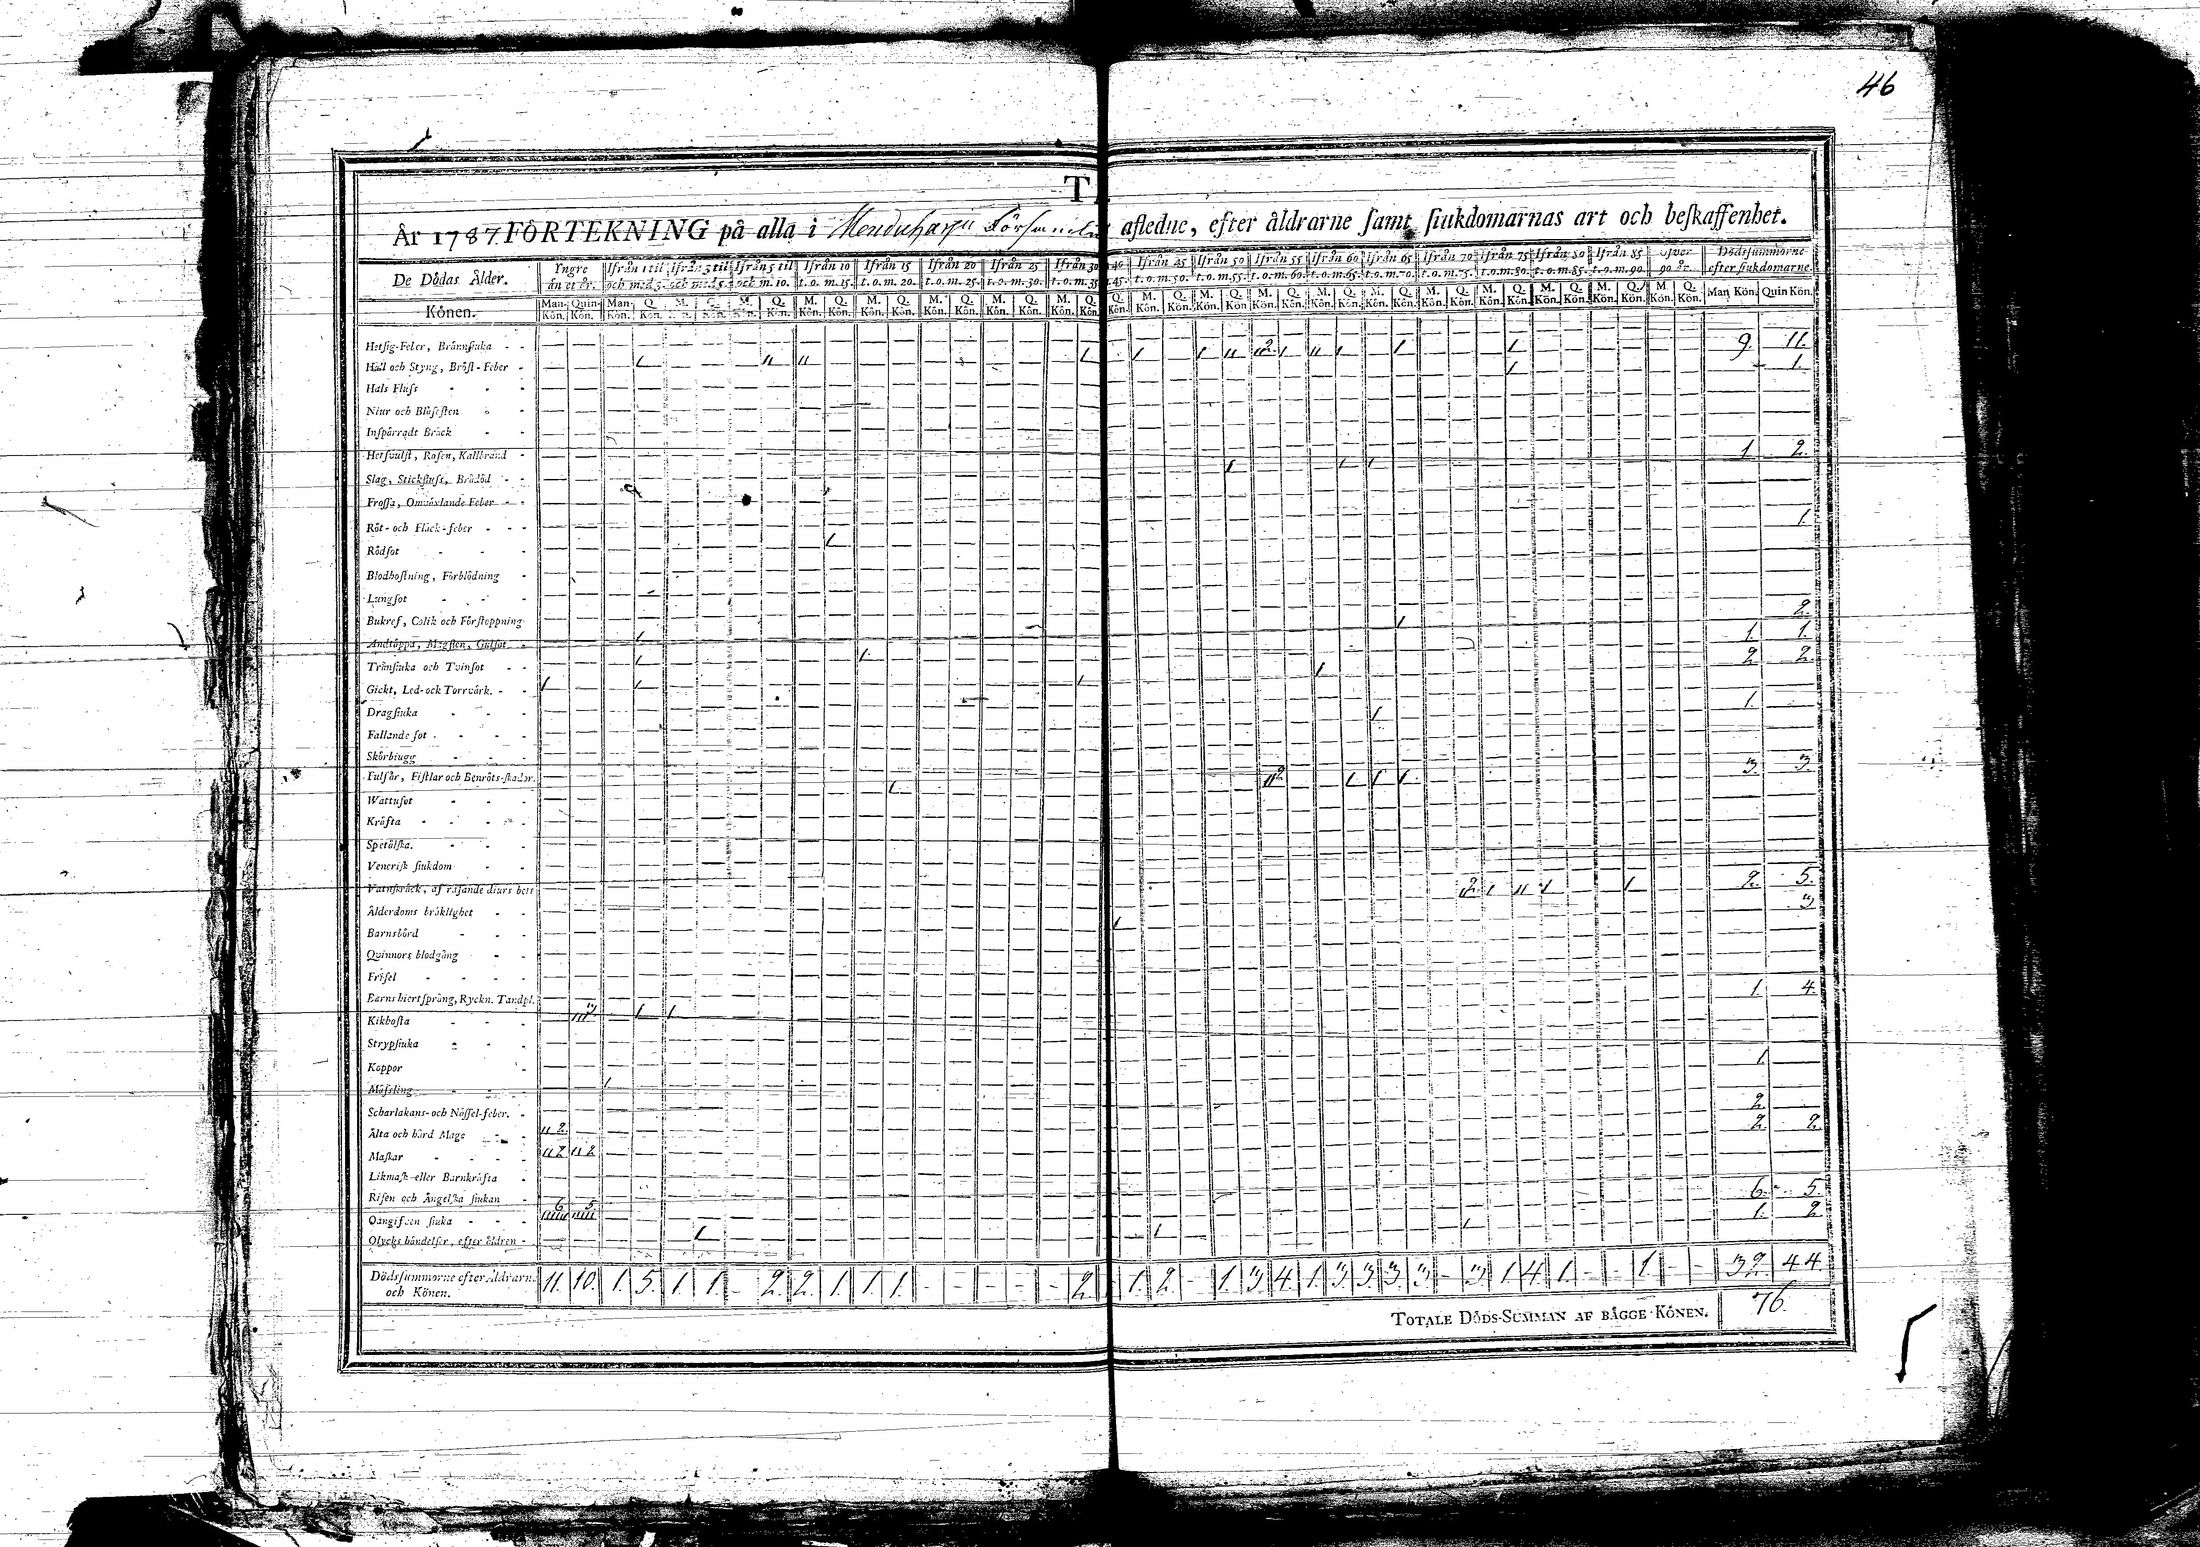 46
T
År 1787. FÖRTEKNING på alla i aflednе, efter åldrarne ſamt ſiukdomarnas art och beſkaffenhet.
De Dödas Ålder. Yngre än et år. Ifrån 1 til och med 3. Ifrån 3 til och m. 5. Ifrån 5 til och m. 10. Ifrån 10 t. o. m. 15. Ifrån 15 t. o. m. 20. Ifrån 20 t. o. m. 25. Ifrån 25 t. o. m. 30. Ifrån 30 t. o. m. 35 40 45. Ifrån 45 t. o. m. 50. Ifrån 50 t. o. m. 55. Ifrån 55 t. o. m. 60. Ifrån 60 t. o. m. 65. Ifrån 65 t. o. m. 70. Ifrån 70 t. o. m. 75. Ifrån 75 t. o. m. 80. Ifrån 80 t. o. m. 85. Ifrån 85 t. o. m. 90. Öfver 90 år. Dödsſummorne efter ſiukdomarne.
Könen. Man Kön. Quin Kön. Man Kön. Q. Kön. M. Kön. Q. Kön. M. Kön. Q. Kön. Man Kön. Quin Kön.
Hetſig-Feber, Brännſiuka - - 9. 11.
Håll och Styng, Bröſt-Feber - 1 1.
Hals Fluſs
Niur och Blåſeſten
Inſpärradt Bråck
Hetſvulſt, Roſen, Kallbrand - 1. 2.
Slag, Stickfluſs, Brådöd
Froſſa, Omväxlande Feber
Röt- och Fläck-feber - - - 1.
Rödſot 1
Blodhoſtning, Förblödning
Lungſot
Bukref, Colik och Förſtoppning 1 2.
Andtäppa, Mågſten, Gulſot 1. 1.
Tränſiuka och Tvinſot 1 1 2. 2.
Gickt, Led- ock Torrvärk. 1 1 1
Dragſiuka 1 1.
Fallande ſot
Skörbiugg
Fulſår, Fiſtlar och Benröts-ſkador. 3. 3.
Wattuſot
Kräfta
Spetälſka.
Veneriſk ſiukdom
Vatnſkräck, af raſande diurs bett 2. 5.
Ålderdoms bräklighet 3
Barnsbörd 1
Quinnors blodgång
Friſel
Barns hiertſprång, Ryckn. Tandpl. 1. 4.
Kikhoſta 3 1 1
Strypſiuka
Koppor 1.
Mäſsling 1
Scharlakans- och Näſſel-feber. 2.
Älta och hård Mage 2. 2. 2.
Maſkar 2 2
Likmaſk eller Barnkräfta
Riſen och Ängelſka ſiukan 6. 5.
Oangifven ſiuka 6 5 1. 2
Olycks händelſer, efter åldren 1 1 1
Dödsſummorne efter Åldrarn. och Könen. 11. 10. 1. 5. 1. 1. - 2. 2. 1. 1. 1. - - - - - 2 1. 2. - 1. 3. 4. 1. 3. 3. 3. 3. - 3. 1 4. 1. - - 1. - - 32. 44.
TOTALE DÖDS-SUMMAN AF BÅGGE KÖNEN. 76.